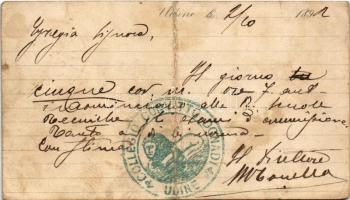 Udine li 2/10 1892
Egregia Signora,
Il giorno
cinque cor. m. ore 7 ant.
incominciano alle R. Scuole
Tecniche gli esami d'ammissione
Tanto a di lei norma
Con stima
Il Direttore
COLLEGIO CONVITTO
UDINE